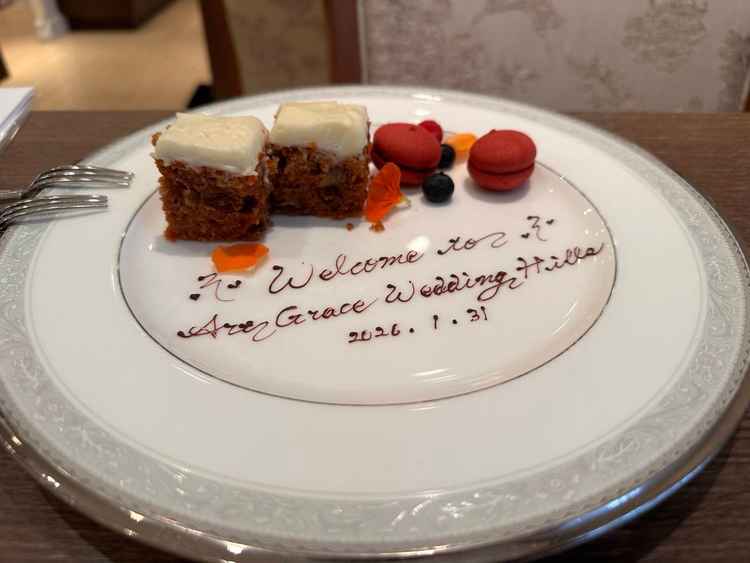 Welcome to
Art Grace Wedding Hills
2026.1.31